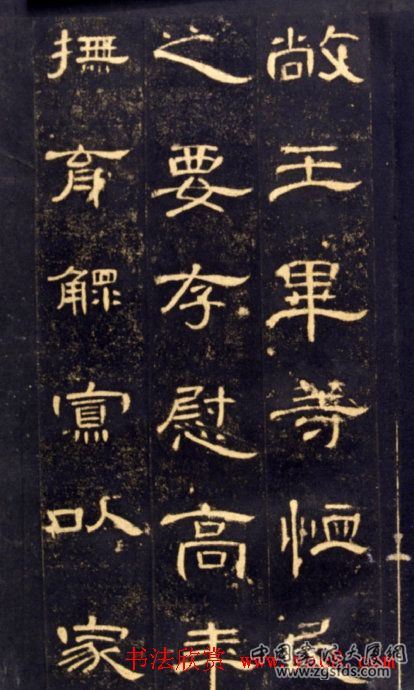 敞王畢等恤民
之要存慰高年
撫育鰥寡以家
书法欣赏
www.zgsfds.com